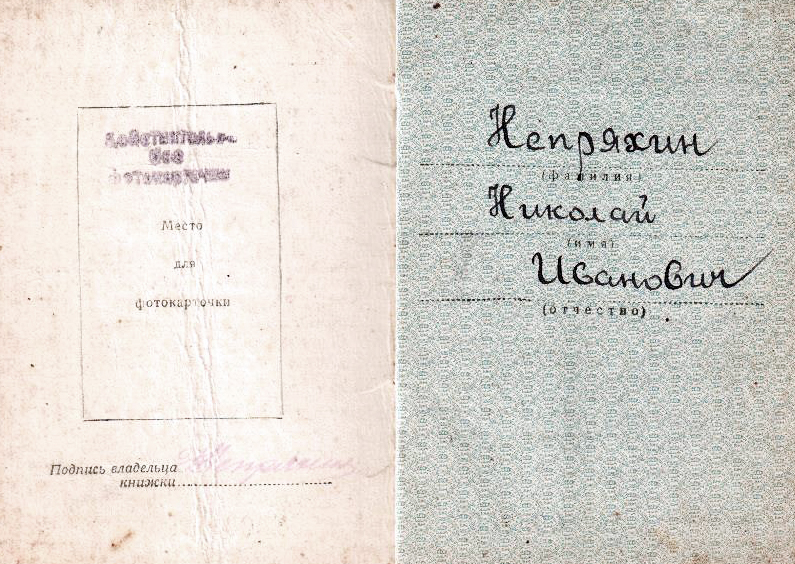 Действительн.
без
фотокарточки
Место
для
фотокарточки
Подпись владельца
книжки
Непряхин
Непряхин
(фамилия)
Николай
(имя)
Иванович
(отчество)